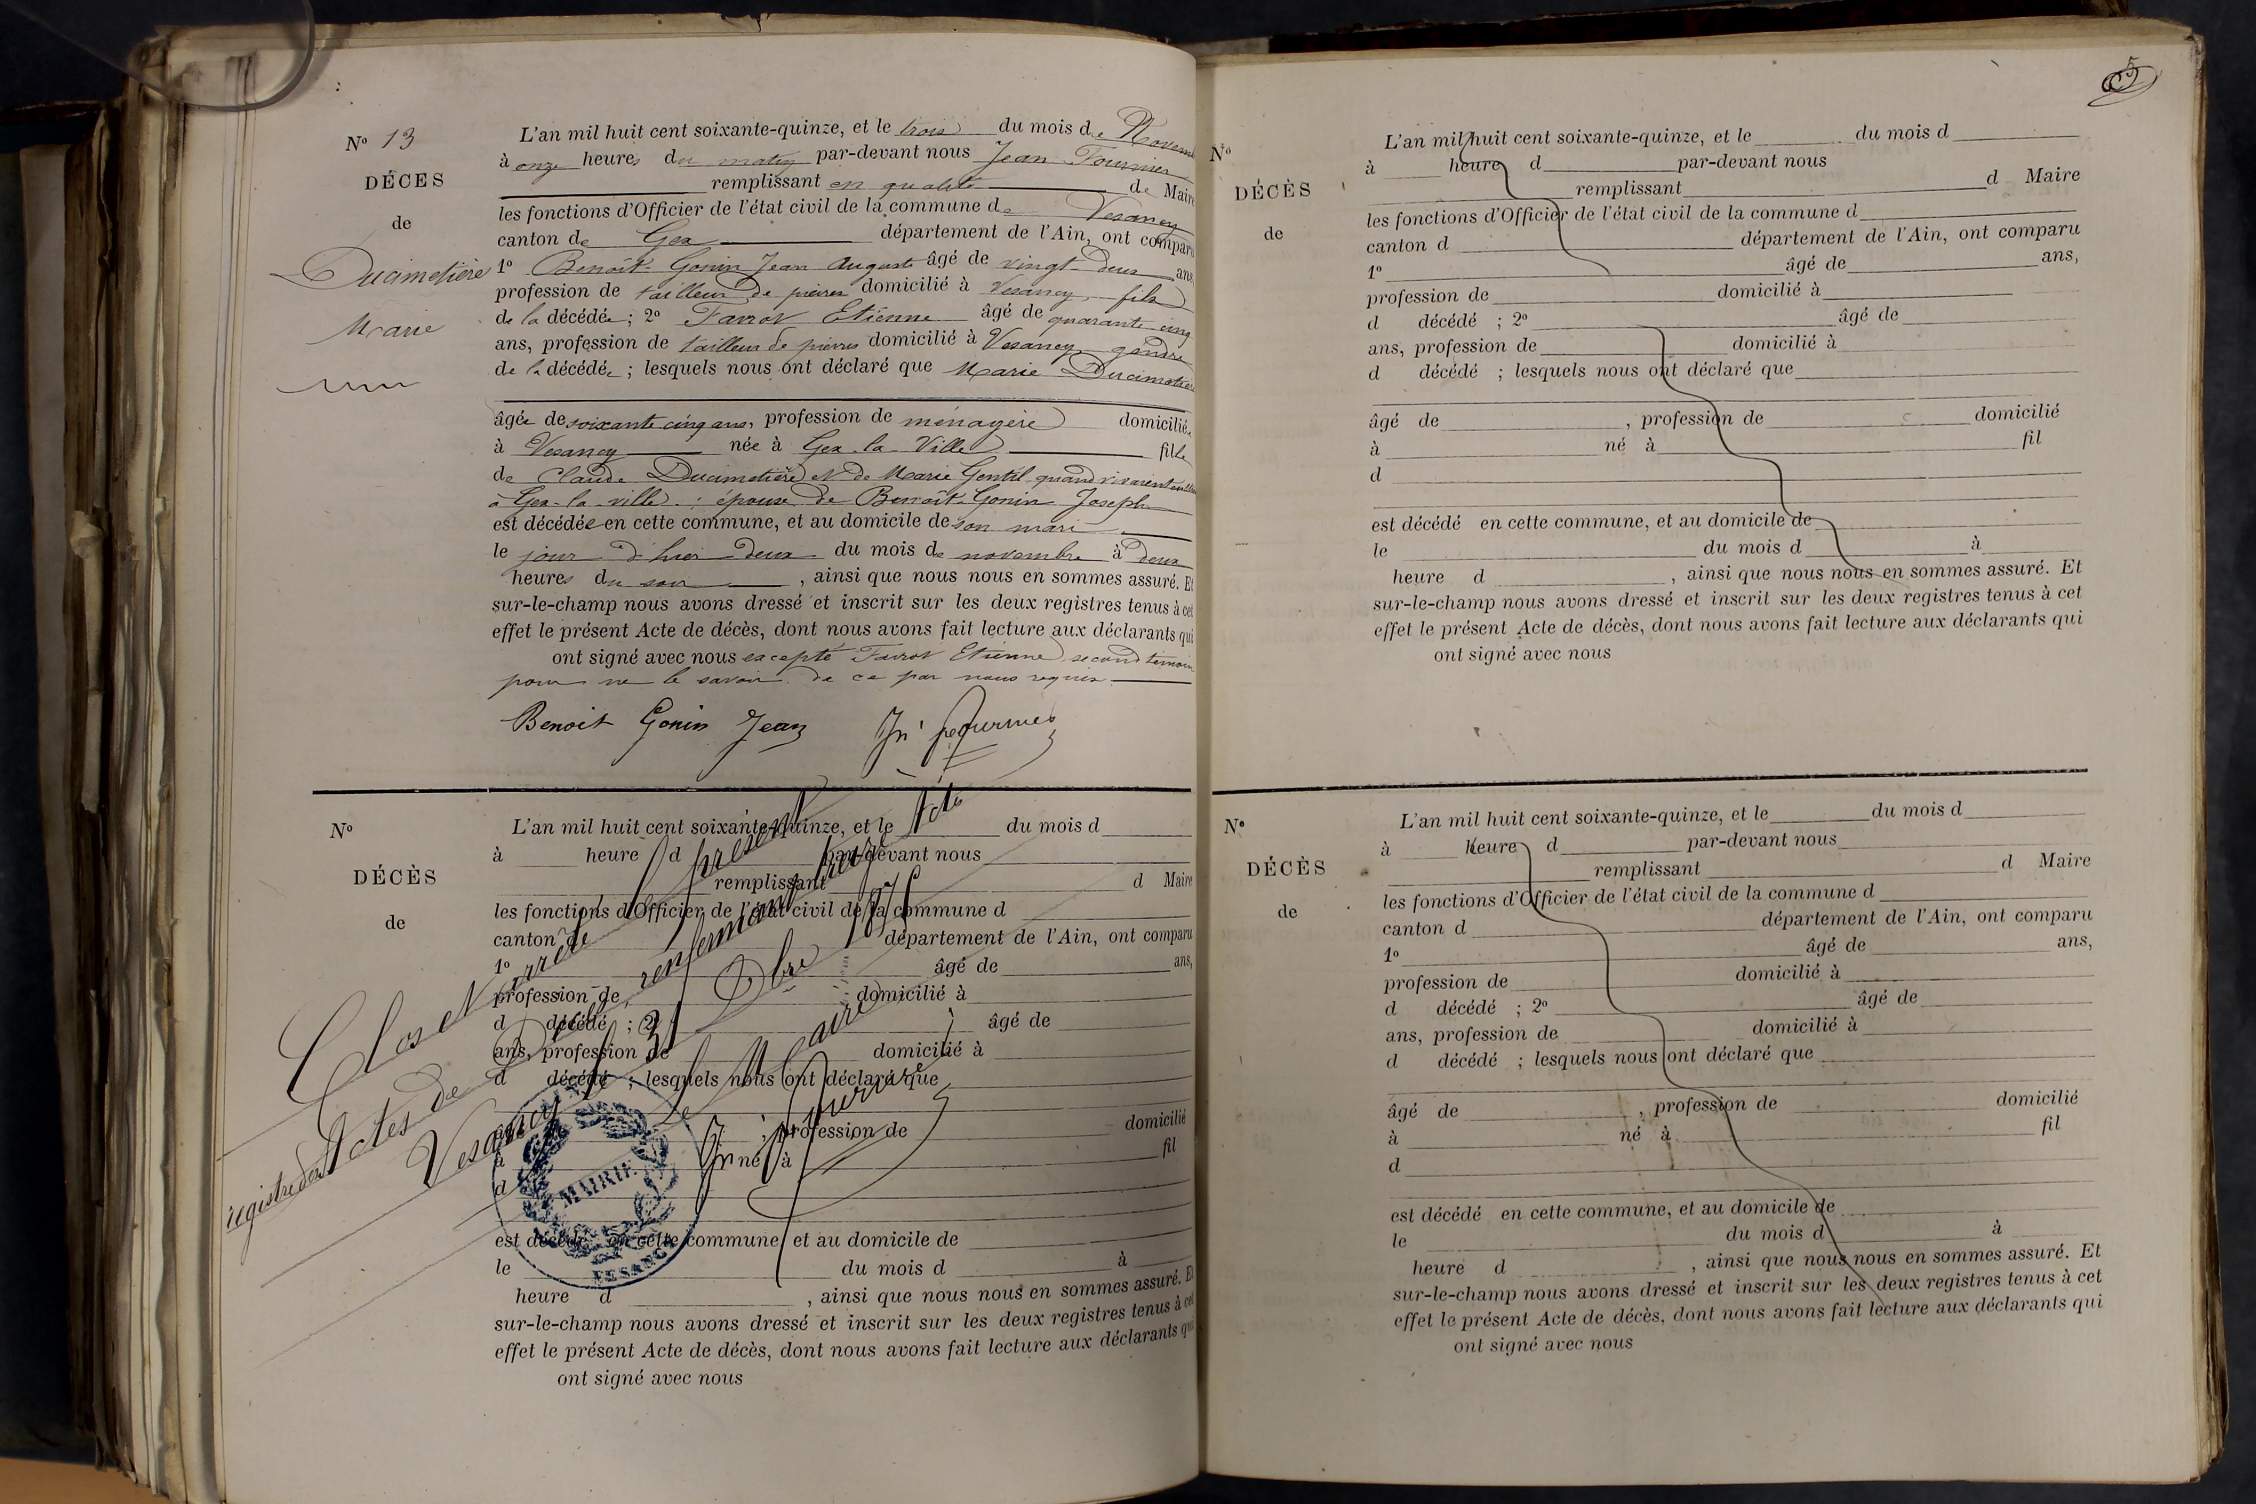 Nº 13
DÉCÈS
de
Ducimetière
Marie
L'an mil huit cent soixante-quinze, et le trois du mois de Novem
à onze heures du matin par-devant nous Jean Fournier
remplissant en qualité de Maire
les fonctions d'Officier de l'état civil de la commune de Vesancy
canton de Gex département de l'Ain, ont comparu
1º Benoît-Gonin Jean Auguste âgé de vingt-deux ans,
profession de tailleur de pierres domicilié à Vesancy, fils
de la décédée ; 2º Favrot Etienne âgé de quarante cinq
ans, profession de tailleur de pierres domicilié à Vesancy gendre
de la décédée ; lesquels nous ont déclaré que Marie Ducimetière
âgée de soixante cinq ans, profession de ménagère domiciliée
à Vesancy née à Gex-la-Ville fille
de Claude Ducimetière et de Marie Gentil quand vivaient
à Gex-la-ville ; épouse de Benoît-Gonin Joseph
est décédée en cette commune, et au domicile de son mari
le jour d'hier deux du mois de novembre à deux
heures du soir , ainsi que nous nous en sommes assuré. Et
sur-le-champ nous avons dressé et inscrit sur les deux registres tenus à cet
effet le présent Acte de décès, dont nous avons fait lecture aux déclarants qui
ont signé avec nous excepté Favrot Etienne second témoin
pour ne le savoir de ce par nous requis
Benoit Gonin Jean Jn Fournier
Nº
DÉCÈS
de
L'an mil huit cent soixante-quinze, et le du mois d
à heure d par-devant nous
remplissant d Maire
les fonctions d'Officier de l'état civil de la commune d
canton d département de l'Ain, ont comparu
1º âgé de ans,
profession de domicilié à
d décédé ; 2º âgé de
ans, profession de domicilié à
d décédé ; lesquels nous ont déclaré que
âgé de , profession de domicilié
à né à fil
d
est décédé en cette commune, et au domicile de
le du mois d à
heure d , ainsi que nous nous en sommes assuré. Et
sur-le-champ nous avons dressé et inscrit sur les deux registres tenus à cet
effet le présent Acte de décès, dont nous avons fait lecture aux déclarants qui
ont signé avec nous
Clos et arrêté le présent
registre des Actes de Décès renfermant treize Actes
Vesancy le 31 Xbre 1875
Le Maire
Jn Fournier
MAIRIE
VESANCY
5
Nº
DÉCÈS
de
L'an mil huit cent soixante-quinze, et le du mois d
à heure d par-devant nous
remplissant d Maire
les fonctions d'Officier de l'état civil de la commune d
canton d département de l'Ain, ont comparu
1º âgé de ans,
profession de domicilié à
d décédé ; 2º âgé de
ans, profession de domicilié à
d décédé ; lesquels nous ont déclaré que
âgé de , profession de domicilié
à né à fil
d
est décédé en cette commune, et au domicile de
le du mois d à
heure d , ainsi que nous nous en sommes assuré. Et
sur-le-champ nous avons dressé et inscrit sur les deux registres tenus à cet
effet le présent Acte de décès, dont nous avons fait lecture aux déclarants qui
ont signé avec nous
Nº
DÉCÈS
de
L'an mil huit cent soixante-quinze, et le du mois d
à heure d par-devant nous
remplissant d Maire
les fonctions d'Officier de l'état civil de la commune d
canton d département de l'Ain, ont comparu
1º âgé de ans,
profession de domicilié à
d décédé ; 2º âgé de
ans, profession de domicilié à
d décédé ; lesquels nous ont déclaré que
âgé de , profession de domicilié
à né à fil
d
est décédé en cette commune, et au domicile de
le du mois d à
heure d , ainsi que nous nous en sommes assuré. Et
sur-le-champ nous avons dressé et inscrit sur les deux registres tenus à cet
effet le présent Acte de décès, dont nous avons fait lecture aux déclarants qui
ont signé avec nous